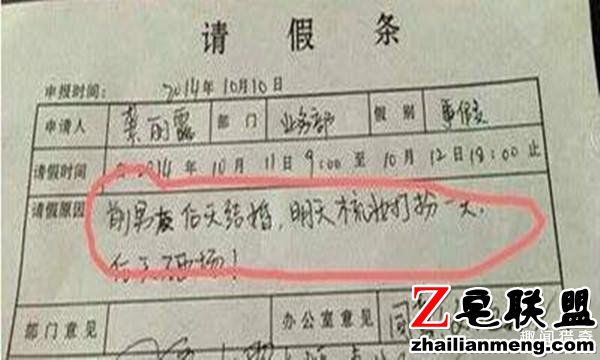 请假条
申报时间： 2014年10月10日
申请人 龚丽露 部门 业务部 假别 事假
请假时间 自2014年10月11日9:00至10月12日18:00止
请假原因 前男友后天结婚，明天梳妆打扮一天，
后天砸场！
部门意见 办公室意见 同意
Z 宅联盟
zhailianmeng.com
趣闻猎奇